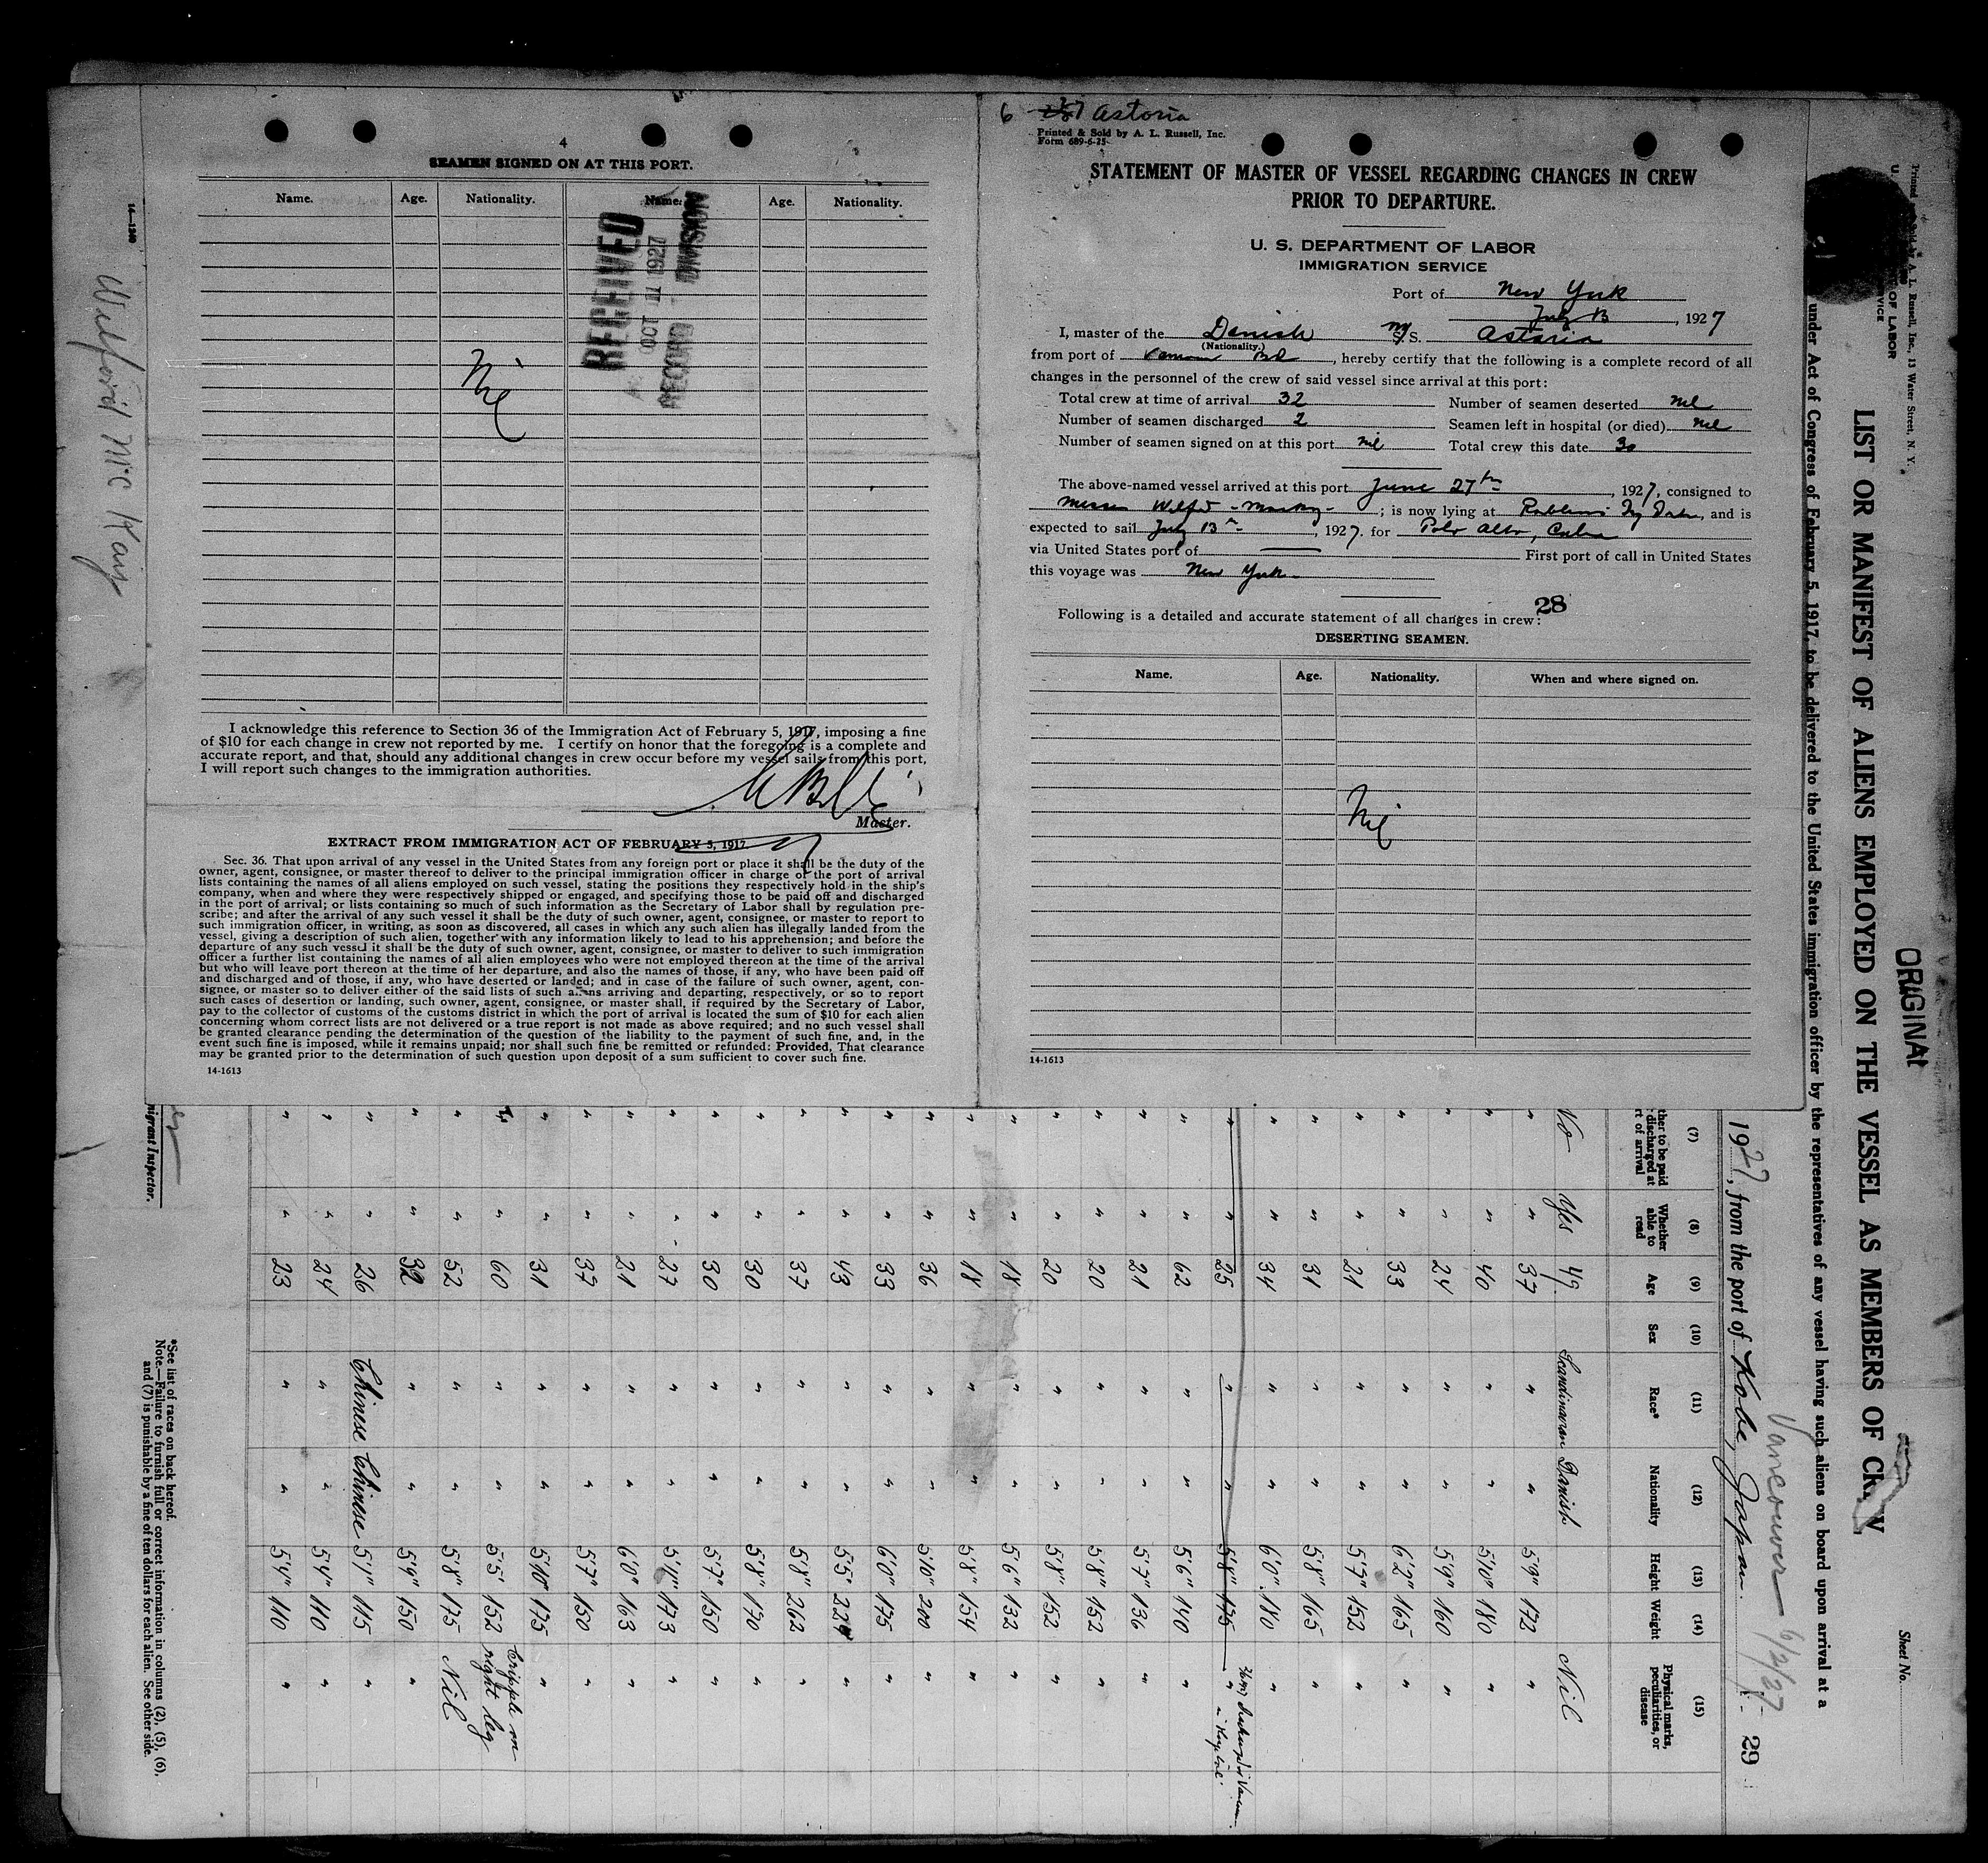 4
SEAMEN SIGNED ON AT THIS PORT.
Name. Age. Nationality. Name. Age. Nationality.
RECEIVED
OCT 11 1927
RECORD DIVISION
Nil
I acknowledge this reference to Section 36 of the Immigration Act of February 5, 1917, imposing a fine
of $10 for each change in crew not reported by me. I certify on honor that the foregoing is a complete and
accurate report, and that, should any additional changes in crew occur before my vessel sails from this port,
I will report such changes to the immigration authorities.
Master.
EXTRACT FROM IMMIGRATION ACT OF FEBRUARY 5, 1917
Sec. 36. That upon arrival of any vessel in the United States from any foreign port or place it shall be the duty of the
owner, agent, consignee, or master thereof to deliver to the principal immigration officer in charge of the port of arrival
lists containing the names of all aliens employed on such vessel, stating the positions they respectively hold in the ship's
company, when and where they were respectively shipped or engaged, and specifying those to be paid off and discharged
in the port of arrival; or lists containing so much of such information as the Secretary of Labor shall by regulation pre-
scribe; and after the arrival of any such vessel it shall be the duty of such owner, agent, consignee, or master to report to
such immigration officer, in writing, as soon as discovered, all cases in which any such alien has illegally landed from the
vessel, giving a description of such alien, together with any information likely to lead to his apprehension; and before the
departure of any such vessel it shall be the duty of such owner, agent, consignee, or master to deliver to such immigration
officer a further list containing the names of all alien employees who were not employed thereon at the time of the arrival
but who will leave port thereon at the time of her departure, and also the names of those, if any, who have been paid off
and discharged and of those, if any, who have deserted or landed; and in case of the failure of such owner, agent, con-
signee, or master so to deliver either of the said lists of such aliens arriving and departing, respectively, or so to report
such cases of desertion or landing, such owner, agent, consignee, or master shall, if required by the Secretary of Labor,
pay to the collector of customs of the customs district in which the port of arrival is located the sum of $10 for each alien
concerning whom correct lists are not delivered or a true report is not made as above required; and no such vessel shall
be granted clearance pending the determination of the question of the liability to the payment of such fine, and, in the
event such fine is imposed, while it remains unpaid; nor shall such fine be remitted or refunded: Provided, That clearance
may be granted prior to the determination of such question upon deposit of a sum sufficient to cover such fine.
14-1613
6 Astoria
Printed & Sold by A. L. Russell, Inc.
Form 689-6-25
STATEMENT OF MASTER OF VESSEL REGARDING CHANGES IN CREW
PRIOR TO DEPARTURE.
U. S. DEPARTMENT OF LABOR
IMMIGRATION SERVICE
Port of New York
July 13, 1927
I, master of the Danish M/S. Astoria
(Nationality.)
from port of , hereby certify that the following is a complete record of all
changes in the personnel of the crew of said vessel since arrival at this port:
Total crew at time of arrival 32 Number of seamen deserted nil
Number of seamen discharged 2 Seamen left in hospital (or died) nil
Number of seamen signed on at this port nil Total crew this date 30
The above-named vessel arrived at this port June 27th, 1927, consigned to
Messrs ; is now lying at , and is
expected to sail July 13th, 1927. for Cuba
via United States port of First port of call in United States
this voyage was New York
28
Following is a detailed and accurate statement of all changes in crew:
DESERTING SEAMEN.
Name. Age. Nationality. When and where signed on.
Nil
14-1613
14—1240
Wilford McKay
Printed by A. L. Russell, Inc., 13 Water Street, N. Y.
U. OF LABOR
VICE
ORIGINAL
Sheet No.
LIST OR MANIFEST OF ALIENS EMPLOYED ON THE VESSEL AS MEMBERS OF CREW
under Act of Congress of February 5, 1917, to be delivered to the United States immigration officer by the representatives of any vessel having such aliens on board upon arrival at a
Vancouver 6/2/27
1927, from the port of Kobe, Japan. 29
(7) (8) (9) (10) (11) (12) (13) (14) (15)
ther to be paid discharged at rt of arrival Whether able to read Age Sex Race* Nationality Height Weight Physical marks, peculiarities, or disease
No Yes 49 Scandinavian Danish Nil
" " 37 " " 5'9" 172 "
" " 40 " " 5'10" 180 "
" " 24 " " 5'9" 160 "
" " 33 " " 6'2" 165 "
" " 21 " " 5'7" 152 "
" " 31 " " 5'8" 165 "
" " 34 " " 6'0" 180 "
" " 25 " " 5'8" 175 "
" " 62 " " 5'6" 140 "
" " 21 " " 5'7" 136 "
" " 20 " " 5'8" 152 "
" " 20 " " 5'8" 152 "
" " 18 " " 5'6" 132 "
" " 18 " " 5'8" 154 "
" " 36 " " 5'10" 200 "
" " 33 " " 6'0" 175 "
" " 43 " " 5'5" 224 "
" " 37 " " 5'8" 262 "
" " 30 " " 5'8" 170 "
" " 30 " " 5'7" 150 "
" " 27 " " 5'11" 173 "
" " 21 " " 6'0" 163 "
" " 37 " " 5'7" 150 "
" " 31 " " 5'10" 175 "
" " 60 " " 5'5" 152 Cripple on right leg
" " 52 " " 5'8" 175 Nil
" " 32 " " 5'9" 150 "
" " 26 Chinese Chinese 5'1" 115 "
" " 24 " " 5'4" 110 "
" " 23 " " 5'4" 110 "
migrant Inspector.
*See list of races on back hereof.
Note.—Failure to furnish full or correct information in columns (2), (5), (6),
and (7) is punishable by a fine of ten dollars for each alien. See other side.